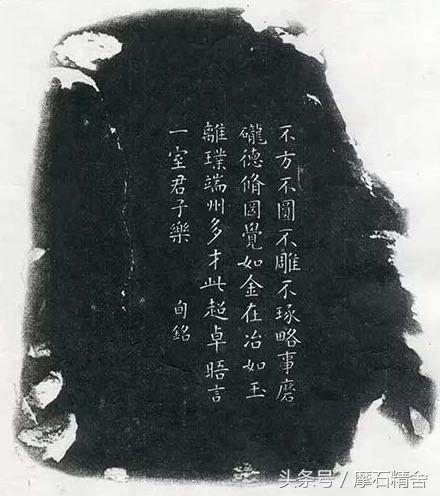 不方不圓不雕不琢略事磨
礲德脩罔覺如金在冶如玉
離璞端州多才此超卓晤言
一室君子樂 甸銘
头条号/摩石精舍